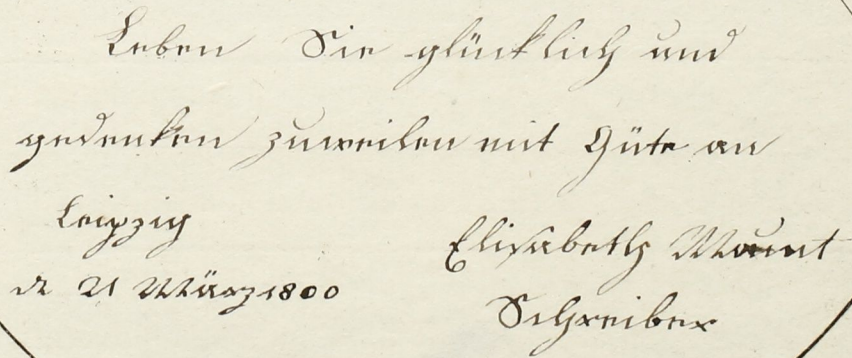 Leben Sie glücklich und
gedenken zuweilen mit Güte an
Leipzig
d 21 März 1800
Elisabeth
Schreiber